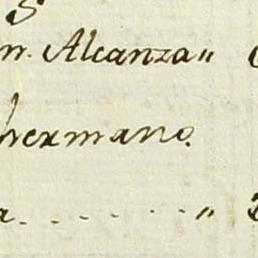 n. Alcanza "
hermano.
a. . . . . . . . "